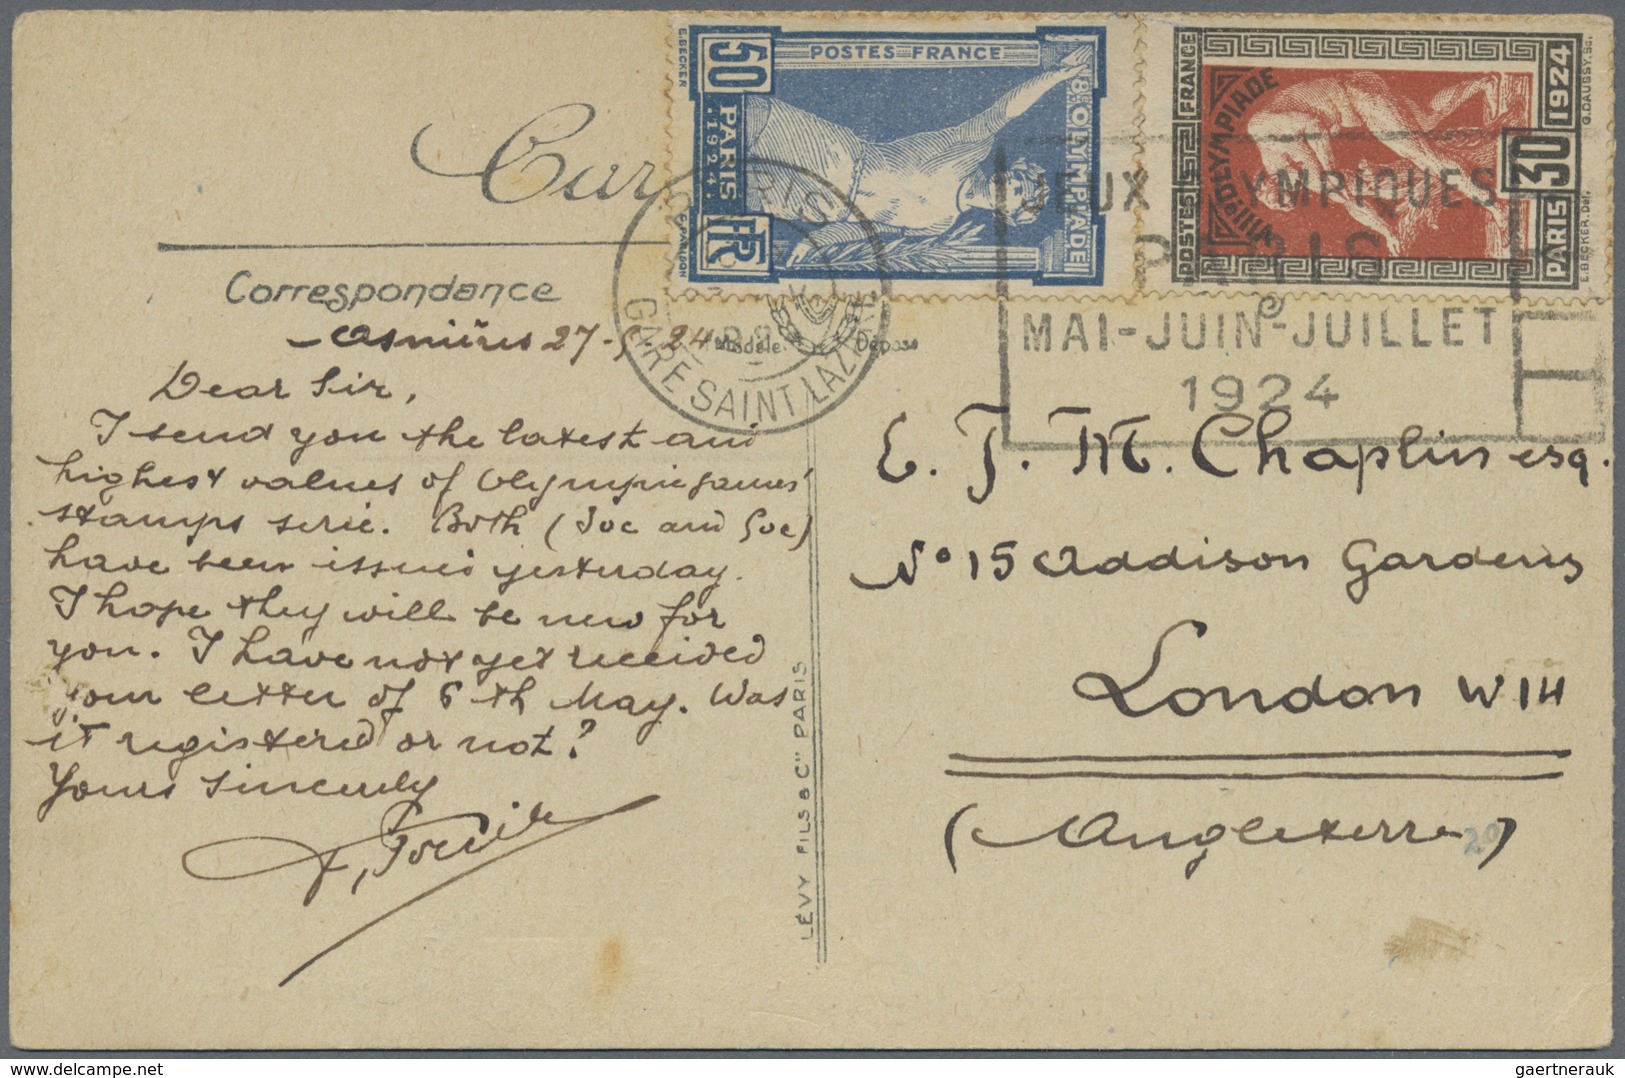 E.BECKER
50
PARIS
1924
FR
G.PARISON
POSTES FRANCE
8e OLYMPIADE
POSTES FRANCE
VIIIe OLYMPIADE
30
PARIS 1924
E.BECKER.Del.
G.DAUSSY.Sc.
PARIS
GARE SAINT LAZARE
JEUX OLYMPIQUES
PARIS
MAI-JUIN-JUILLET
1924
Correspondance
Modèle Déposé
Asnières 27-5-24
Dear Sir,
I send you the latest and
highest values of Olympic games'
stamps serie. Both (30c and 50c)
have been issued yesterday.
I hope they will be new for
you. I have not yet received
your letter of 6th May. Was
it registered or not?
Yours sincerely
LÉVY FILS & Cie PARIS
E. J. M. Chaplin esq.
No 15 Addison Gardens
London W14
(Angleterre)
20
gaertnerauk